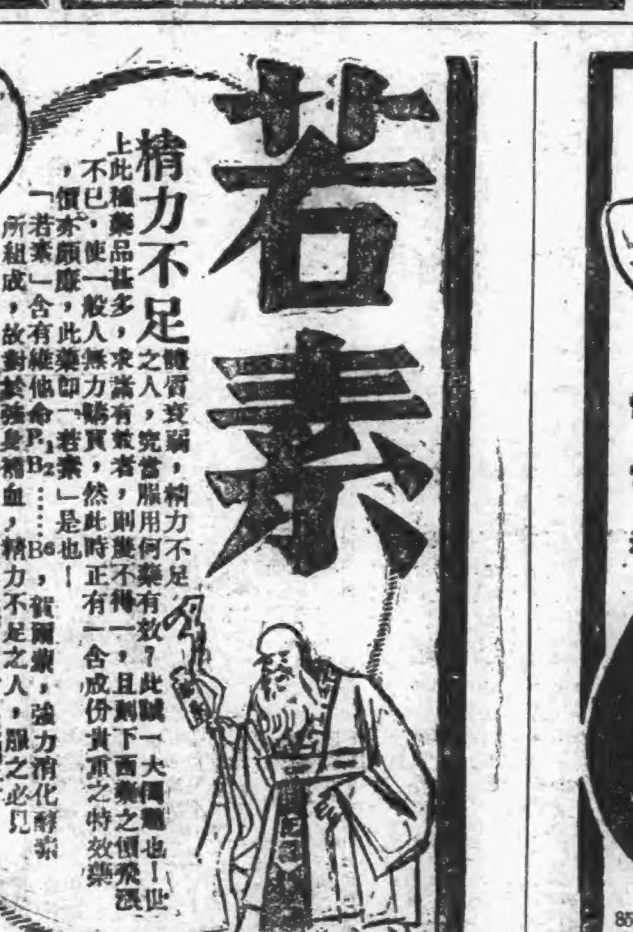 若素
精力不足
體質衰弱，精力不足
之人，究當服用何藥有效？此誠一大問題也！世
上此種藥品甚多，求有效者，則不得一，且刻下西藥之價飛漲
不已，使一般人無力購買，然此時正有一含成份貴重之特效藥
，價亦頗廉，此藥即「若素」是也！
「若素」含有維他命P.1B2……B6，賀爾蒙，強力消化酵素
所組成，故對於強身補血，精力不足之人，服之必見
85